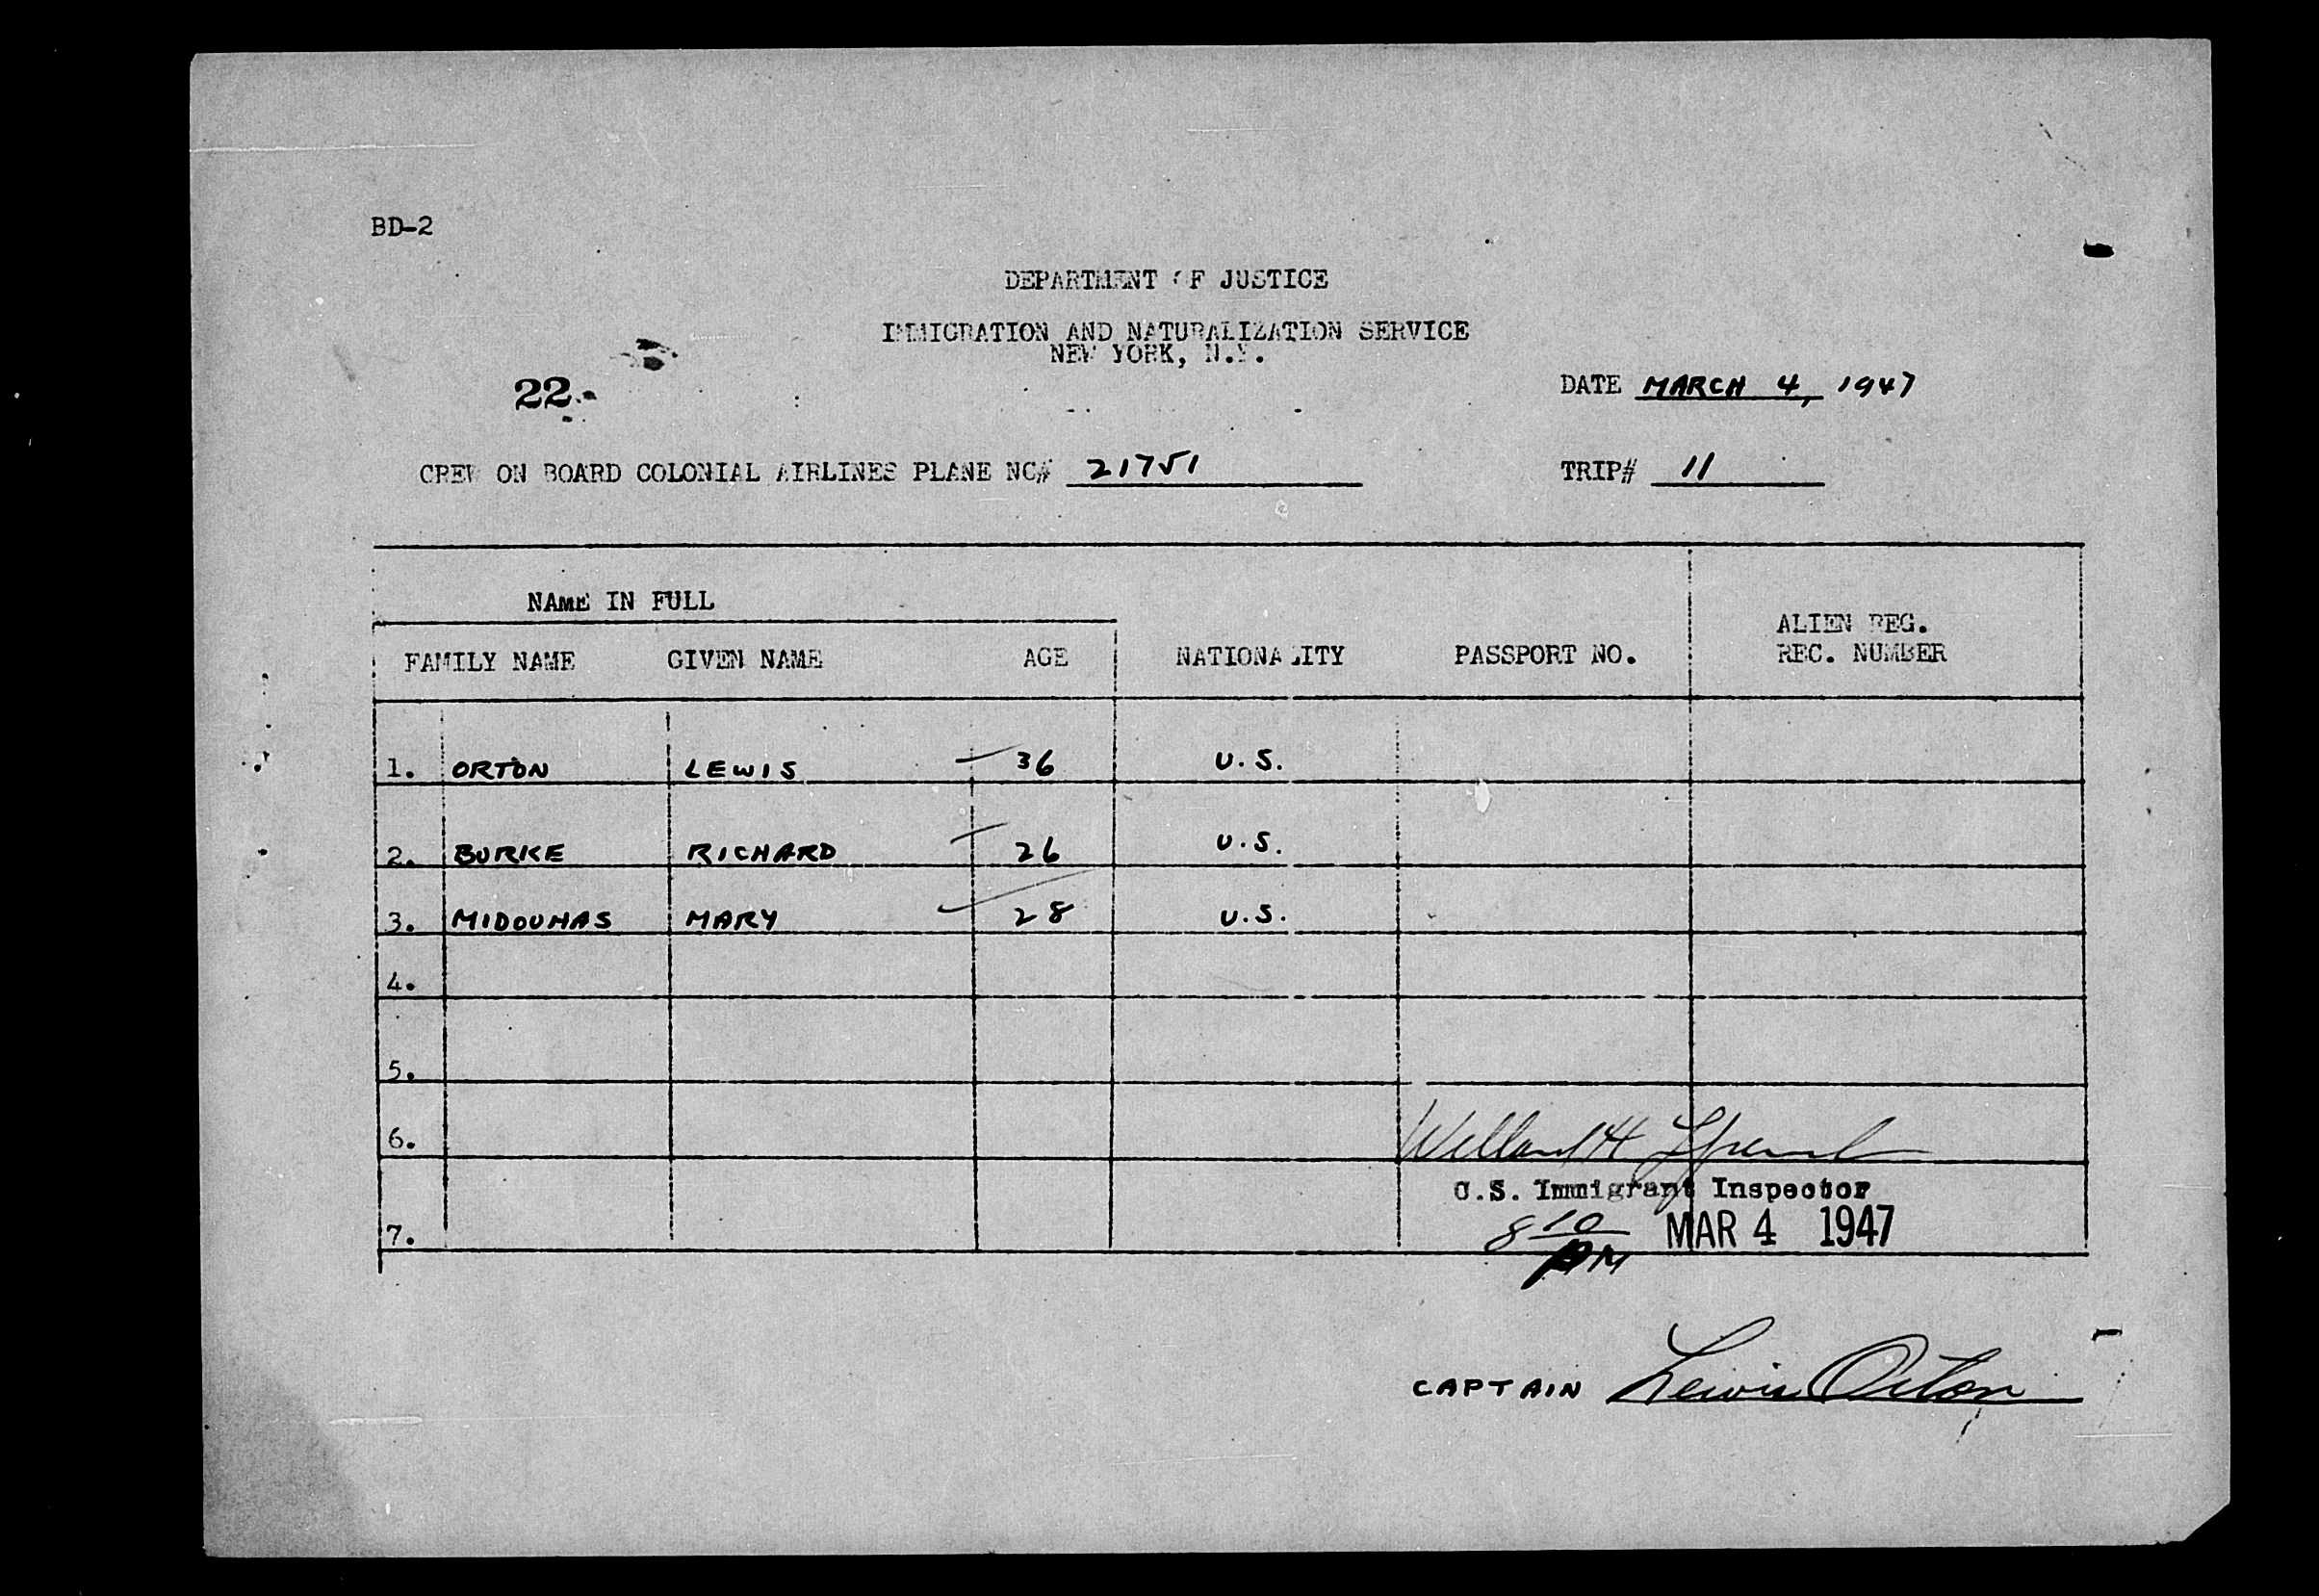 BD-2
DEPARTMENT OF JUSTICE
IMMIGRATION AND NATURALIZATION SERVICE
NEW YORK, N.Y.
22
DATE MARCH 4, 1947
CREW ON BOARD COLONIAL AIRLINES PLANE NC# 21751
TRIP# 11
NAME IN FULL
FAMILY NAME GIVEN NAME AGE NATIONALITY PASSPORT NO. ALIEN REG. REC. NUMBER
1. ORTON LEWIS 36 U.S.
2. BURKE RICHARD 26 U.S.
3. MIDOUHAS MARY 28 U.S.
4.
5.
6. Willard H
U.S. Immigrant Inspector
7. 8 10 PM MAR 4 1947
CAPTAIN Lewis Orton